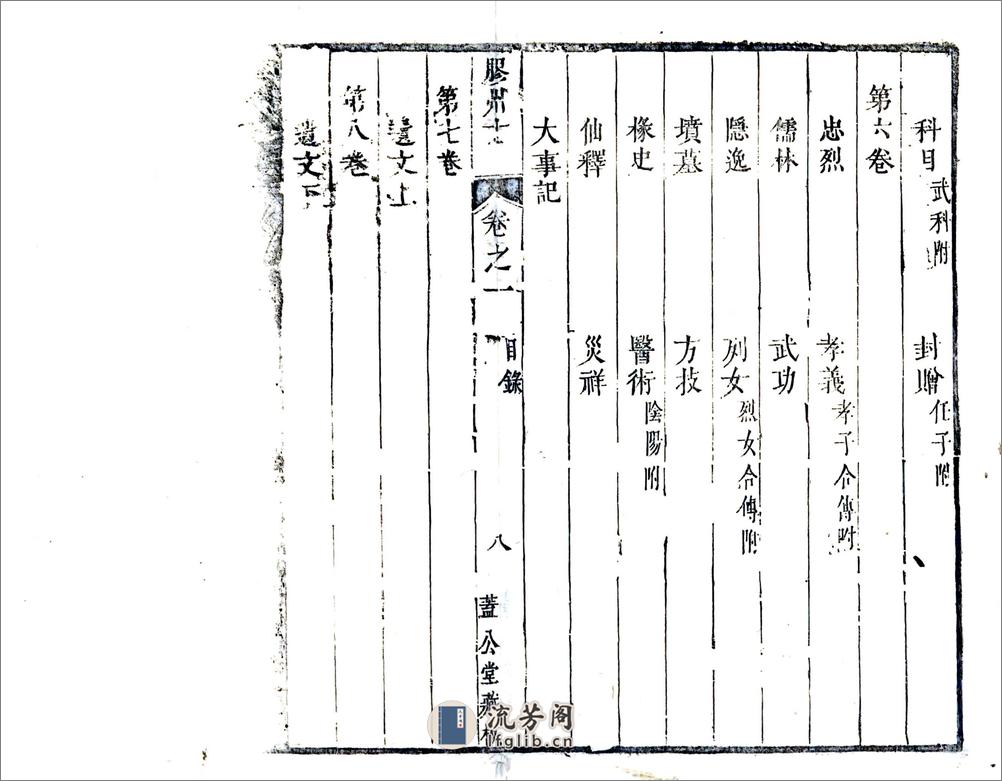 科目武科附 封贈任子附
第六卷
忠烈 孝義孝子合傳附
儒林 武功
隱逸 列女烈女合傳附
墳墓 方技
椽史 醫術陰陽附
仙釋 災祥
大事記
膠州 卷之一 目錄 八 蓋公堂
第七卷
遺文上
第八卷
遺文下
流芳阁
fglib.cn